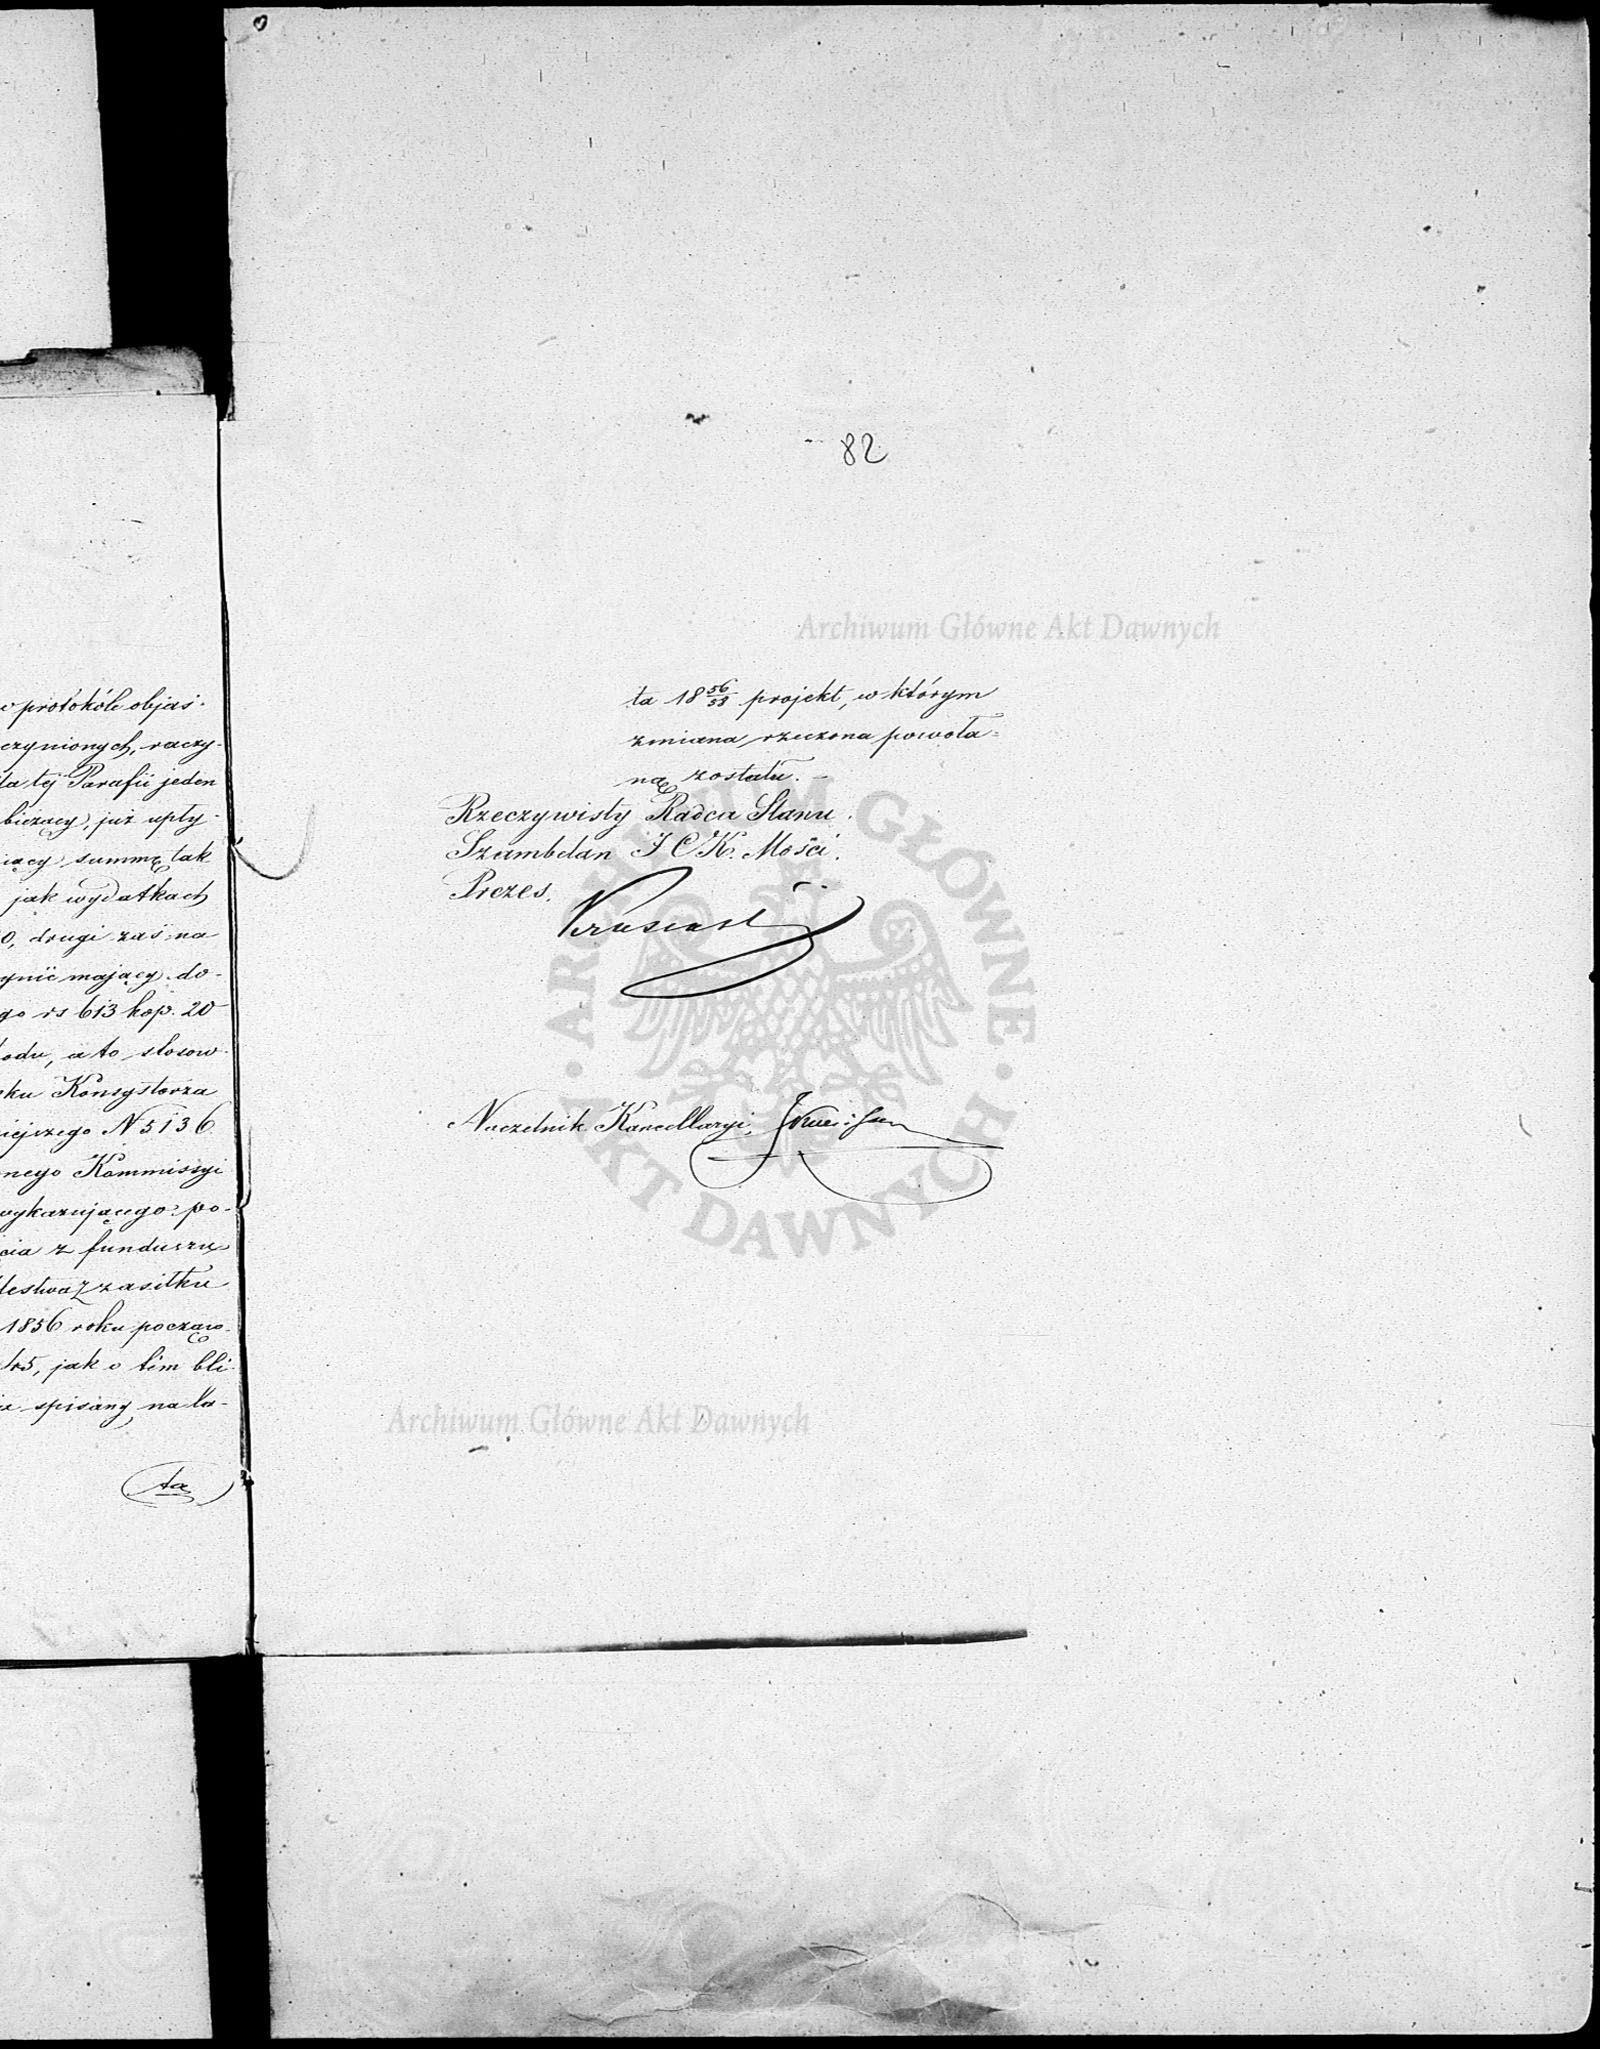 o protokóle objaś-
czynionych, raczy-
la tej Parafii jeden
bieżący, już upły-
iący summę tak
jak wydatkach
0, drugi zaś na
ynić mający do-
go rs 613 kop. 20
odu, a to stosow-
ku Konsystorza
iejszego N 5136
nego Kommissyi
wykazującego po-
cia z funduszu
lestwa zasiłku
1856 roku począw-
45, jak o tém bli-
spisany na la-
ta
82
ta 18 56/58 projekt, w którym
zmiana rzeczona powoła=
ną została.
Rzeczywisty Radca Stanu.
Szambelan J C K. Mości.
Prezes.
Naczelnik Kancellaryi,
Archiwum Główne Akt Dawnych
ARCHIWUM GŁÓWNE · AKT DAWNYCH ·
Archiwum Główne Akt Dawnych